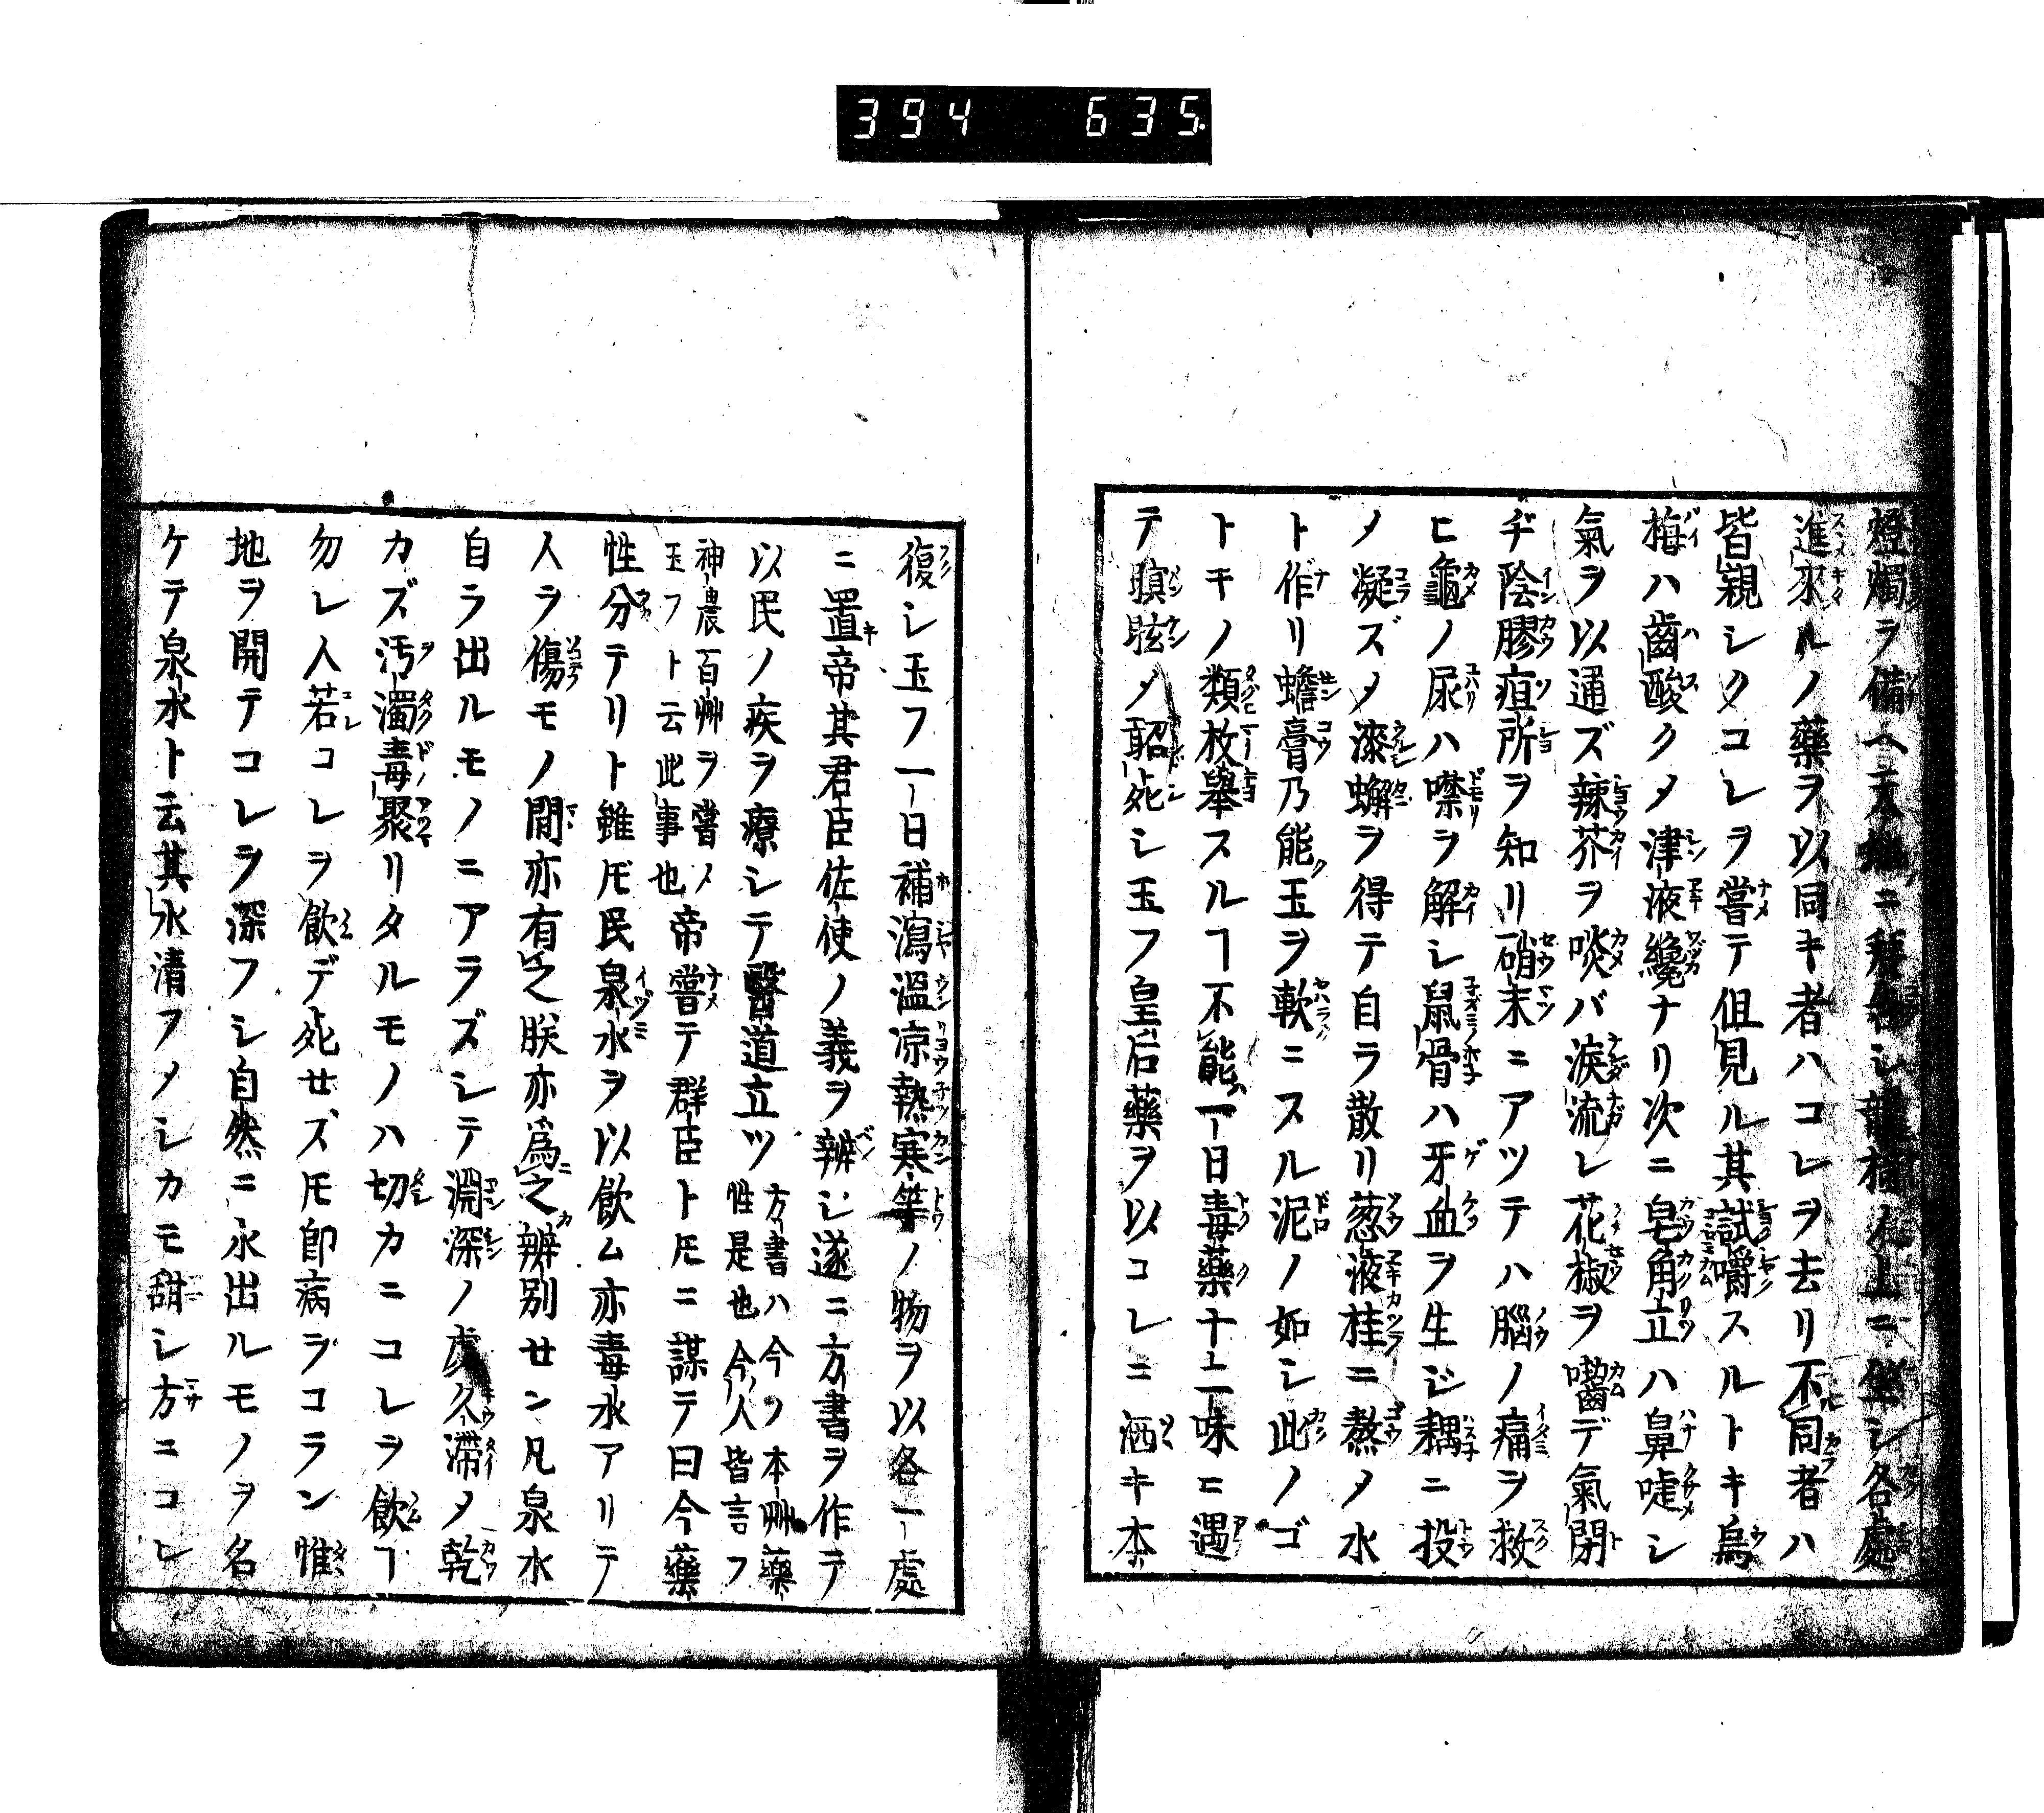 394 635
燈燭ヲ備ヘ天地ニ シ 上ニ坐シ各處
進來ルノ藥ヲ以同キ者ハコレヲ去リ不同者ハ
皆親シクコレヲ嘗テ伹見ル其試嚼スルトキ烏
梅ハ齒酸クメ津液纔ナリ次ニ皂角立ハ鼻嚔シ
氣ヲ以通ズ辣芥ヲ啖バ淚流レ花椒ヲ嚙デ氣閉
ヂ陰膠疸所ヲ知リ硝末ニアツテハ腦ノ痛ヲ救
ヒ龜ノ尿ハ噤ヲ解シ鼠骨ハ牙血ヲ生ジ耦ニ投
ノ凝ズメ漆蠏ヲ得テ自ラ散リ葱液桂ニ熬メ水
ト作リ蟾膏乃能玉ヲ軟ニスル泥ノ如シ此ノゴ
トキノ類枚舉スルヿ不能一日毒藥十二味ニ遇
テ瞑眩メ 死シ玉フ皇后藥ヲ以コレニ洒キ本
復シ玉フ一日補瀉溫凉熱寒等ノ物ヲ以各一處
ニ置帝其君臣佐使ノ義ヲ辨シ遂ニ方書ヲ作テ
以民ノ疾ヲ療シテ醫道立ツ方書ハ今ノ本艸藥
性是也今人皆言フ
神農百艸ヲ嘗メ
玉フト云此事也帝嘗テ群臣トモニ謀テ曰今藥
性分テリト雖モ民泉水ヲ以飮ム亦毒水アリテ
人ヲ傷モノ間亦有之朕亦爲之辨別せン凡泉水
自ラ出ルモノニアラズシテ淵深ノ處久滯メ乾
カズ汚濁毒聚リタルモノハ切カニコレヲ飮ヿ
勿レ人若コレヲ飮デ死せズモ卽病ヲコラン惟
地ヲ開テコレヲ深フシ自然ニ水出ルモノヲ名
ケテ泉水ト云其水清フメシカモ甜シ方ニコレ